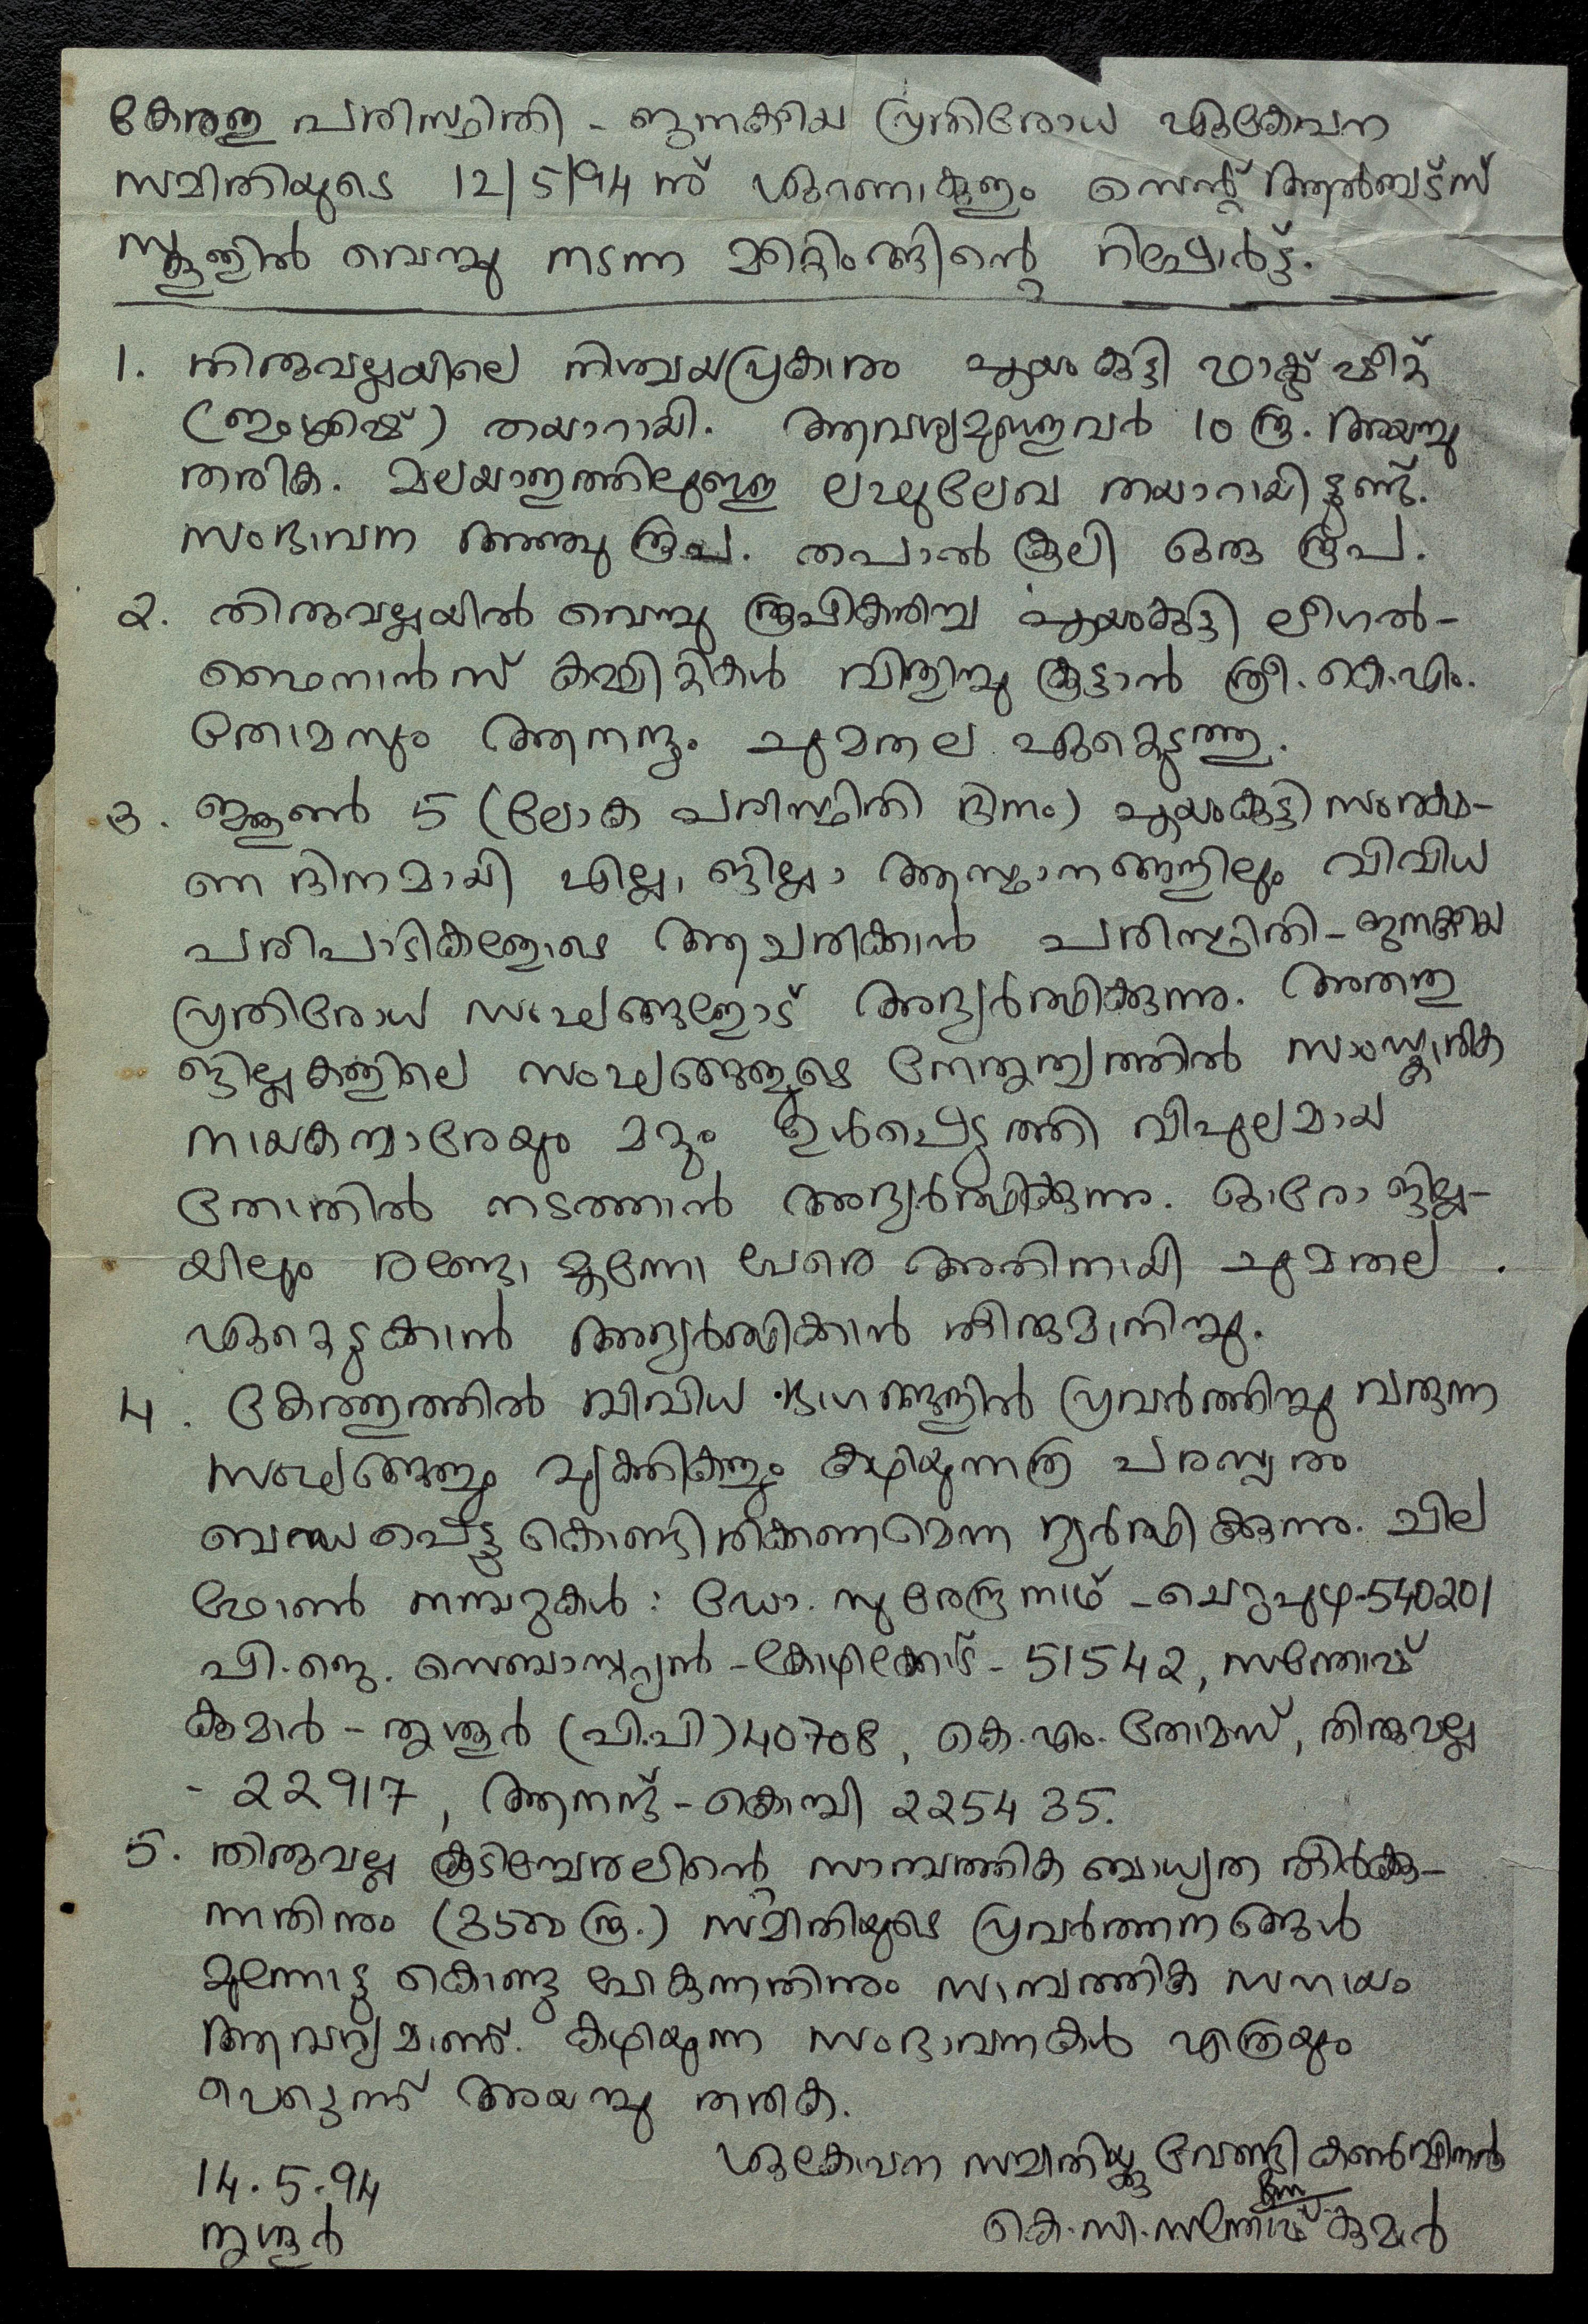 കേരള പരിസ്ഥിതി - ജനകീയ പ്രതിരോധ ഏകോപന
സമിതിയുടെ 12/5/94 ന് എറണാകുളം സെന്റ് ആൽബട്സ്
സ്കൂളിൽ വെച്ചു നടന്ന മീറ്റിംങ്ങിന്റെ റിപ്പോർട്ട്.
1. തിരുവല്ലയിലെ നിശ്ചയപ്രകാരം പൂയംകുട്ടി ഫാക്ട് ഷീറ്റ്
(ഇംഗ്ലീഷ്) തയാറായി. ആവശ്യമുള്ളവർ 10 രൂ. അയച്ചു
തരിക. മലയാളത്തിലുള്ള ലഘുലേഖ തയാറായിട്ടുണ്ട്.
സംഭാവന അഞ്ചു രൂപ. തപാൽ കൂലി ഒരു രൂപ.
2. തിരുവല്ലയിൽ വെച്ചു രൂപീകരിച്ച പൂയംകുട്ടി ലീഗൽ-
ഫൈനാൻസ് കമ്മിറ്റികൾ വിളിച്ചു കൂട്ടാൻ ശ്രീ. കെ.എം.
തോമസും ആനന്ദും ചുമതല ഏറ്റെടുത്തു.
3. ജൂൺ 5 (ലോക പരിസ്ഥിതി ദിനം) പൂയംകുട്ടി സംരക്ഷ-
ണ ദിനമായി എല്ലാ ജില്ലാ ആസ്ഥാനങ്ങളിലും വിവിധ
പരിപാടികളോടെ ആചരിക്കാൻ പരിസ്ഥിതി-ജനകീയ
പ്രതിരോധ സംഘങ്ങളോട് അഭ്യർത്ഥിക്കുന്നു. അതതു
ജില്ലകളിലെ സംഘങ്ങളുടെ നേതൃത്വത്തിൽ സാംസ്കാരിക
നായകന്മാരേയും മറ്റും ഉൾപ്പെടുത്തി വിപുലമായ
തോതിൽ നടത്താൻ അഭ്യർത്ഥിക്കുന്നു. ഓരോ ജില്ല-
യിലും രണ്ടോ മൂന്നോ പേരെ അതിനായി ചുമതല
ഏറ്റെടുക്കാൻ അഭ്യർത്ഥിക്കാൻ തീരുമാനിച്ചു.
4. കേരളത്തിൽ വിവിധ ഭാഗങ്ങളിൽ പ്രവർത്തിച്ചു വരുന്ന
സംഘങ്ങളും വ്യക്തികളും കഴിയുന്നത്ര പരസ്പരം
ബന്ധപ്പെട്ടു കൊണ്ടിരിക്കണമെന്ന ഭ്യർത്ഥിക്കുന്നു. ചില
ഫോൺ നമ്പറുകൾ: ഡോ. സുരേന്ദ്രനാഥ് - ചെറുപുഴ-540201
പി.ജെ. സെബാസ്റ്റ്യൻ - കോഴിക്കോട് - 51542, സന്തോഷ്
കുമാർ - തൃശൂർ (പി.പി) 40708, കെ.എം. തോമസ്, തിരുവല്ല
- 22917, ആനന്ദ് - കൊച്ചി 225435.
5. തിരുവല്ല കൂടിച്ചേരലിന്റെ സാമ്പത്തിക ബാധ്യത തീർക്കു-
ന്നതിനും (3500 രൂ.) സമിതിയുടെ പ്രവർത്തനങ്ങൾ
മുന്നോട്ടു കൊണ്ടു പോകുന്നതിനും സാമ്പത്തിക സഹായം
ആവശ്യമാണ്. കഴിയുന്ന സംഭാവനകൾ എത്രയും
പെട്ടെന്ന് അയച്ചു തരിക.
ഏകോപന സമിതിയ്ക്കു വേണ്ടി കൺവീനർ
14.5.94
കെ.സി. സന്തോഷ് കുമാർ
തൃശൂർ